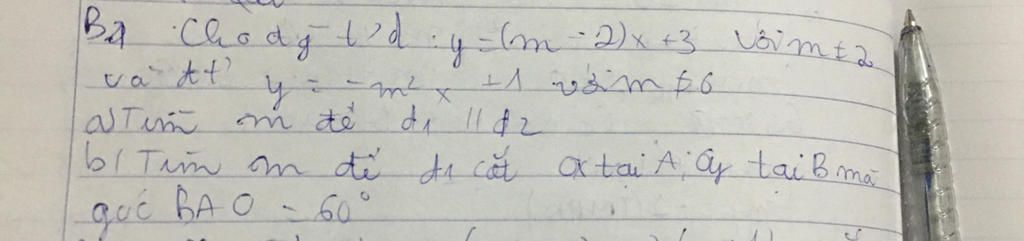 B2 Cho đg t' d: y = (m - 2)x + 3 với m ≠ 2
và đt' y = -m² x + 1 với m ≠ 0
a) Tìm m để d1 // d2
b) Tìm m để d1 cắt Ox tại A; Oy tại B mà
góc BAO = 60°